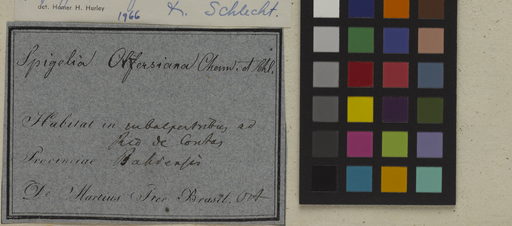 det. Homer H. Hurley
1966 & Schlecht.
Spigelia Olfersiana Cham. et Schl.
Habitat in subalpestribus ad
Rio de Contas
Provinciae Bahiensis
De Martius Iter Brasil. Oct